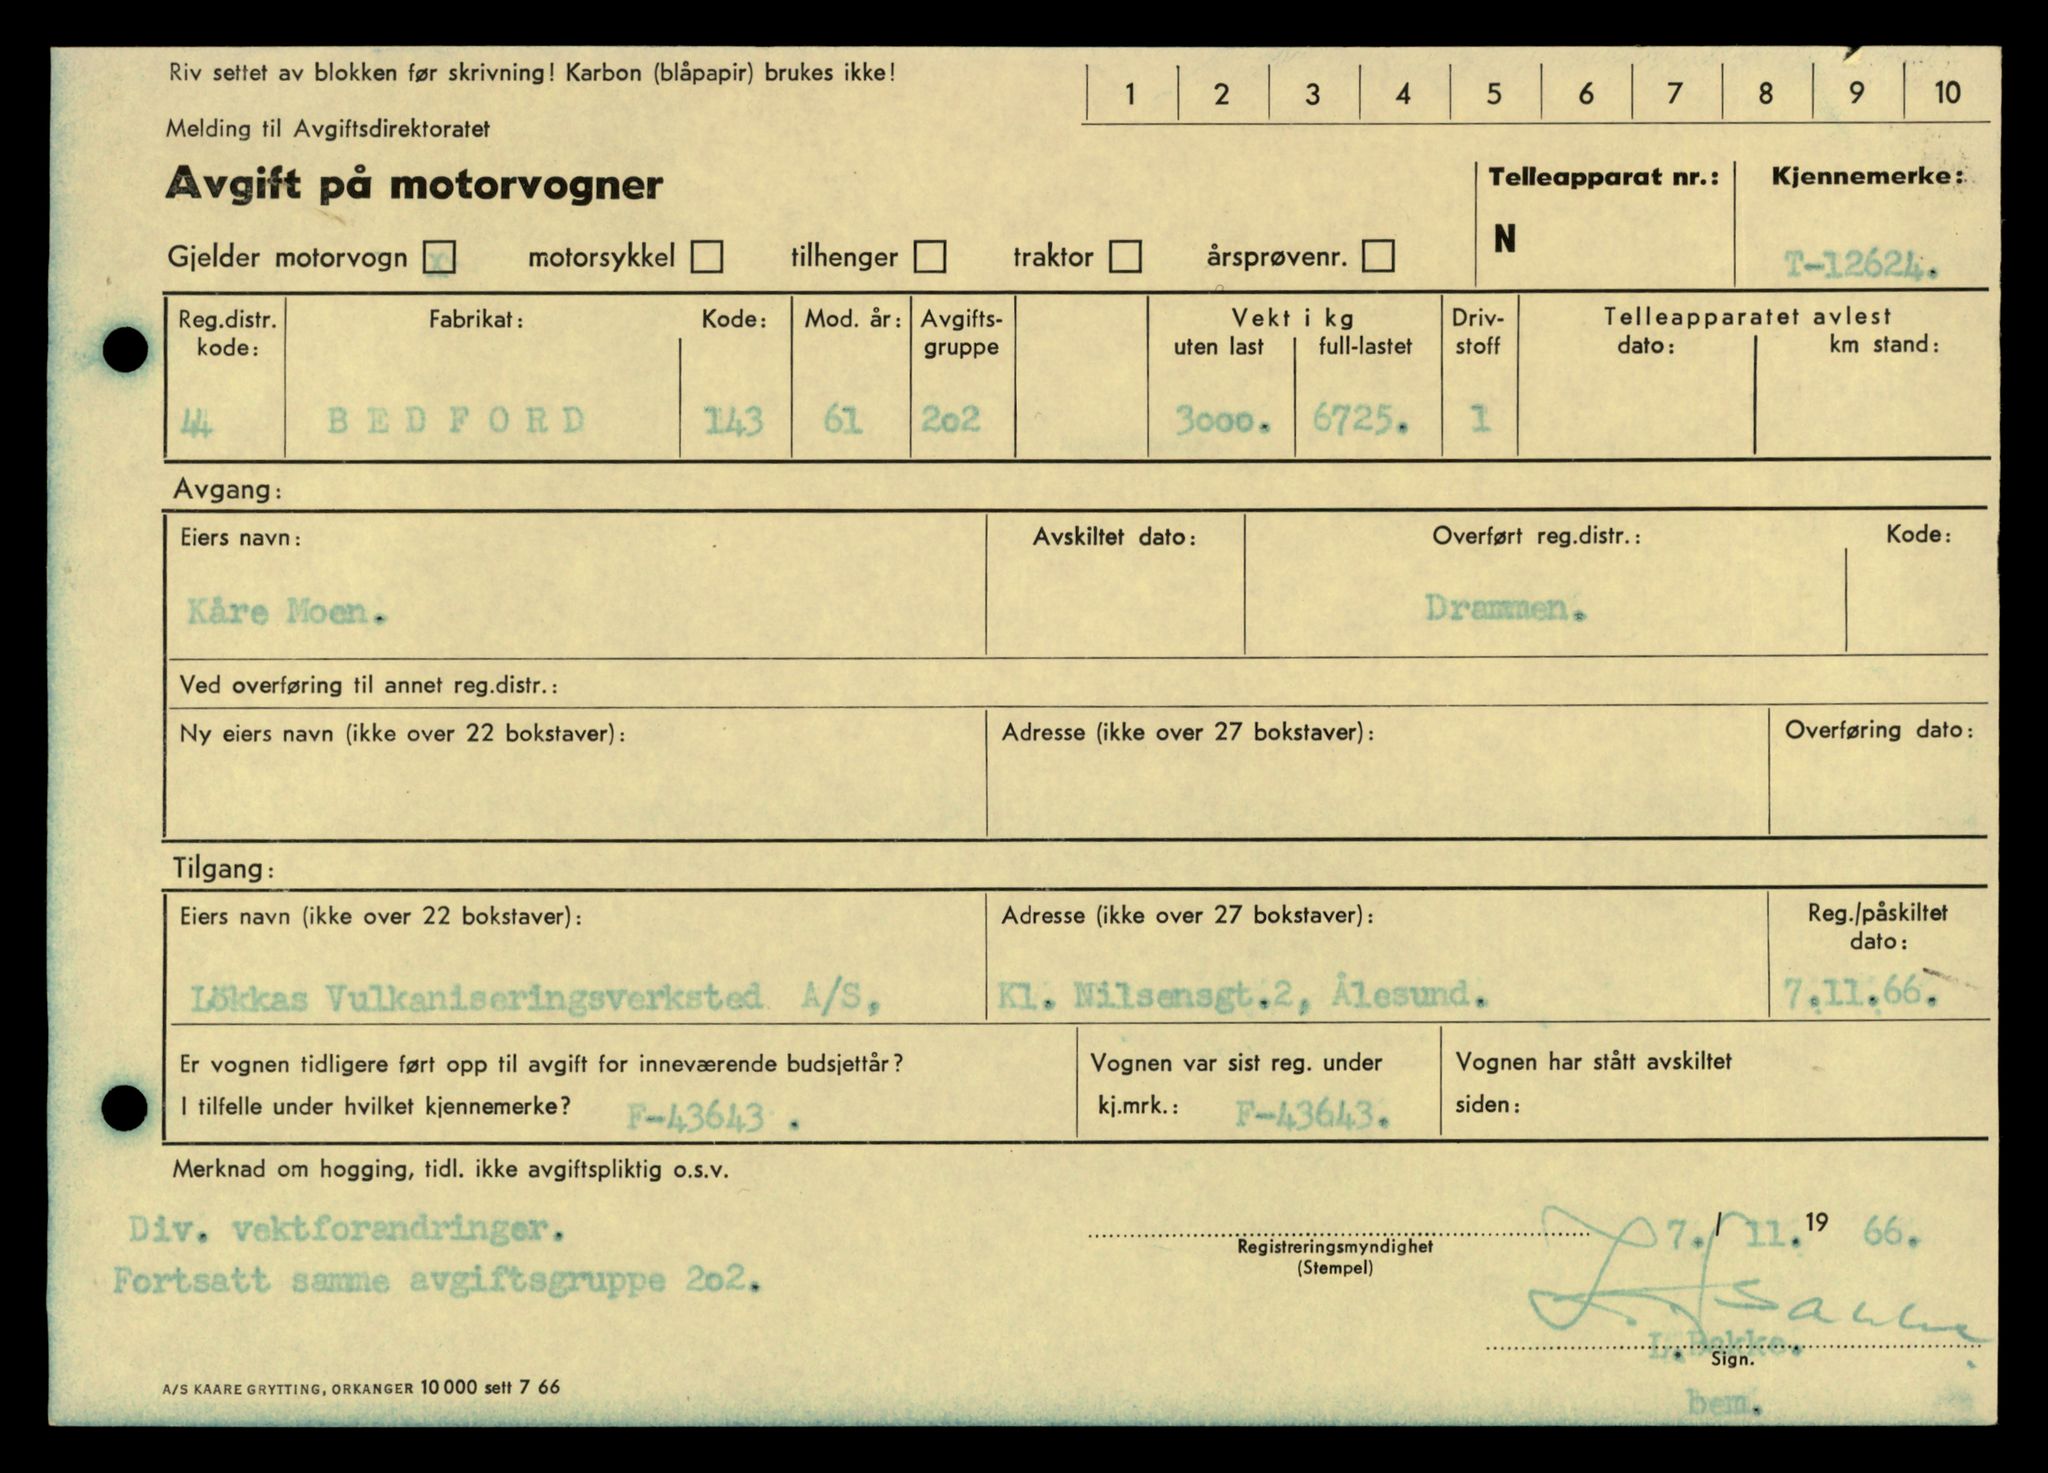 Riv settet av blokken før skrivning! Karbon (blåpapir) brukes ikke!
1 2 3 4 5 6 7 8 9 10
Melding til Avgiftsdirektoratet
Avgift på motorvogner
Telleapparat nr.: Kjennemerke:
N
Gjelder motorvogn x motorsykkel tilhenger traktor årsprøvenr.
T-12624.
Reg.distr. kode: Fabrikat: Kode: Mod. år: Avgifts-gruppe Vekt i kg uten last full-lastet Driv-stoff Telleapparatet avlest dato: km stand:
44 BEDFORD 143 61 202 3000. 6725. 1
Avgang:
Eiers navn: Avskiltet dato: Overført reg.distr.: Kode:
Kåre Moen. Drammen.
Ved overføring til annet reg.distr.:
Ny eiers navn (ikke over 22 bokstaver): Adresse (ikke over 27 bokstaver): Overføring dato:
Tilgang:
Eiers navn (ikke over 22 bokstaver): Adresse (ikke over 27 bokstaver): Reg./påskiltet dato:
Lökkas Vulkaniseringsverksted A/S, Kl. Nilsensgt.2, Ålesund. 7.11.66.
Er vognen tidligere ført opp til avgift for inneværende budsjettår? Vognen var sist reg. under Vognen har stått avskiltet
I tilfelle under hvilket kjennemerke? F-43643 . kj.mrk.: F-43643. siden:
Merknad om hogging, tidl. ikke avgiftspliktig o.s.v.
Div. vektforandringer.
7. / 11. 19 66.
Registreringsmyndighet
(Stempel)
Fortsatt samme avgiftsgruppe 202.
L. Bakke
L. Bakke.
Sign.
bem.
A/S KAARE GRYTTING, ORKANGER 10 000 sett 7 66